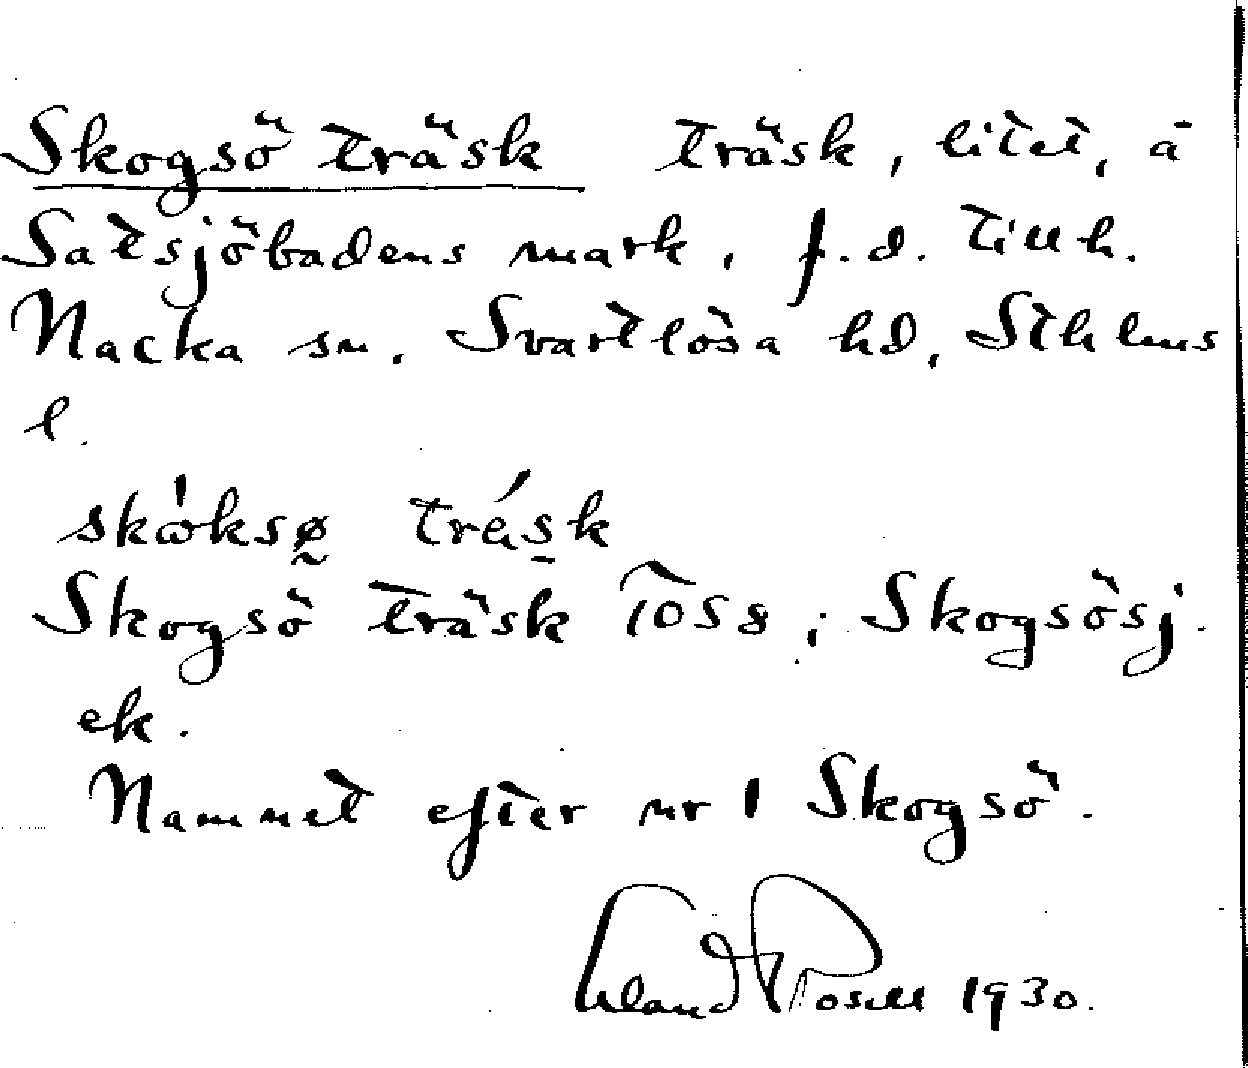 Skogsö träsk träsk, litet, å
Saltsjöbadens mark, f.d. till h.
Nacka sn. Svartlösa hd, Sthlms
l.
skωksø träsk
Skogsö träsk 1058; Skogsösj.
ek.
Namnet efter nr 1 Skogsö.
Erland Rosell 1930.